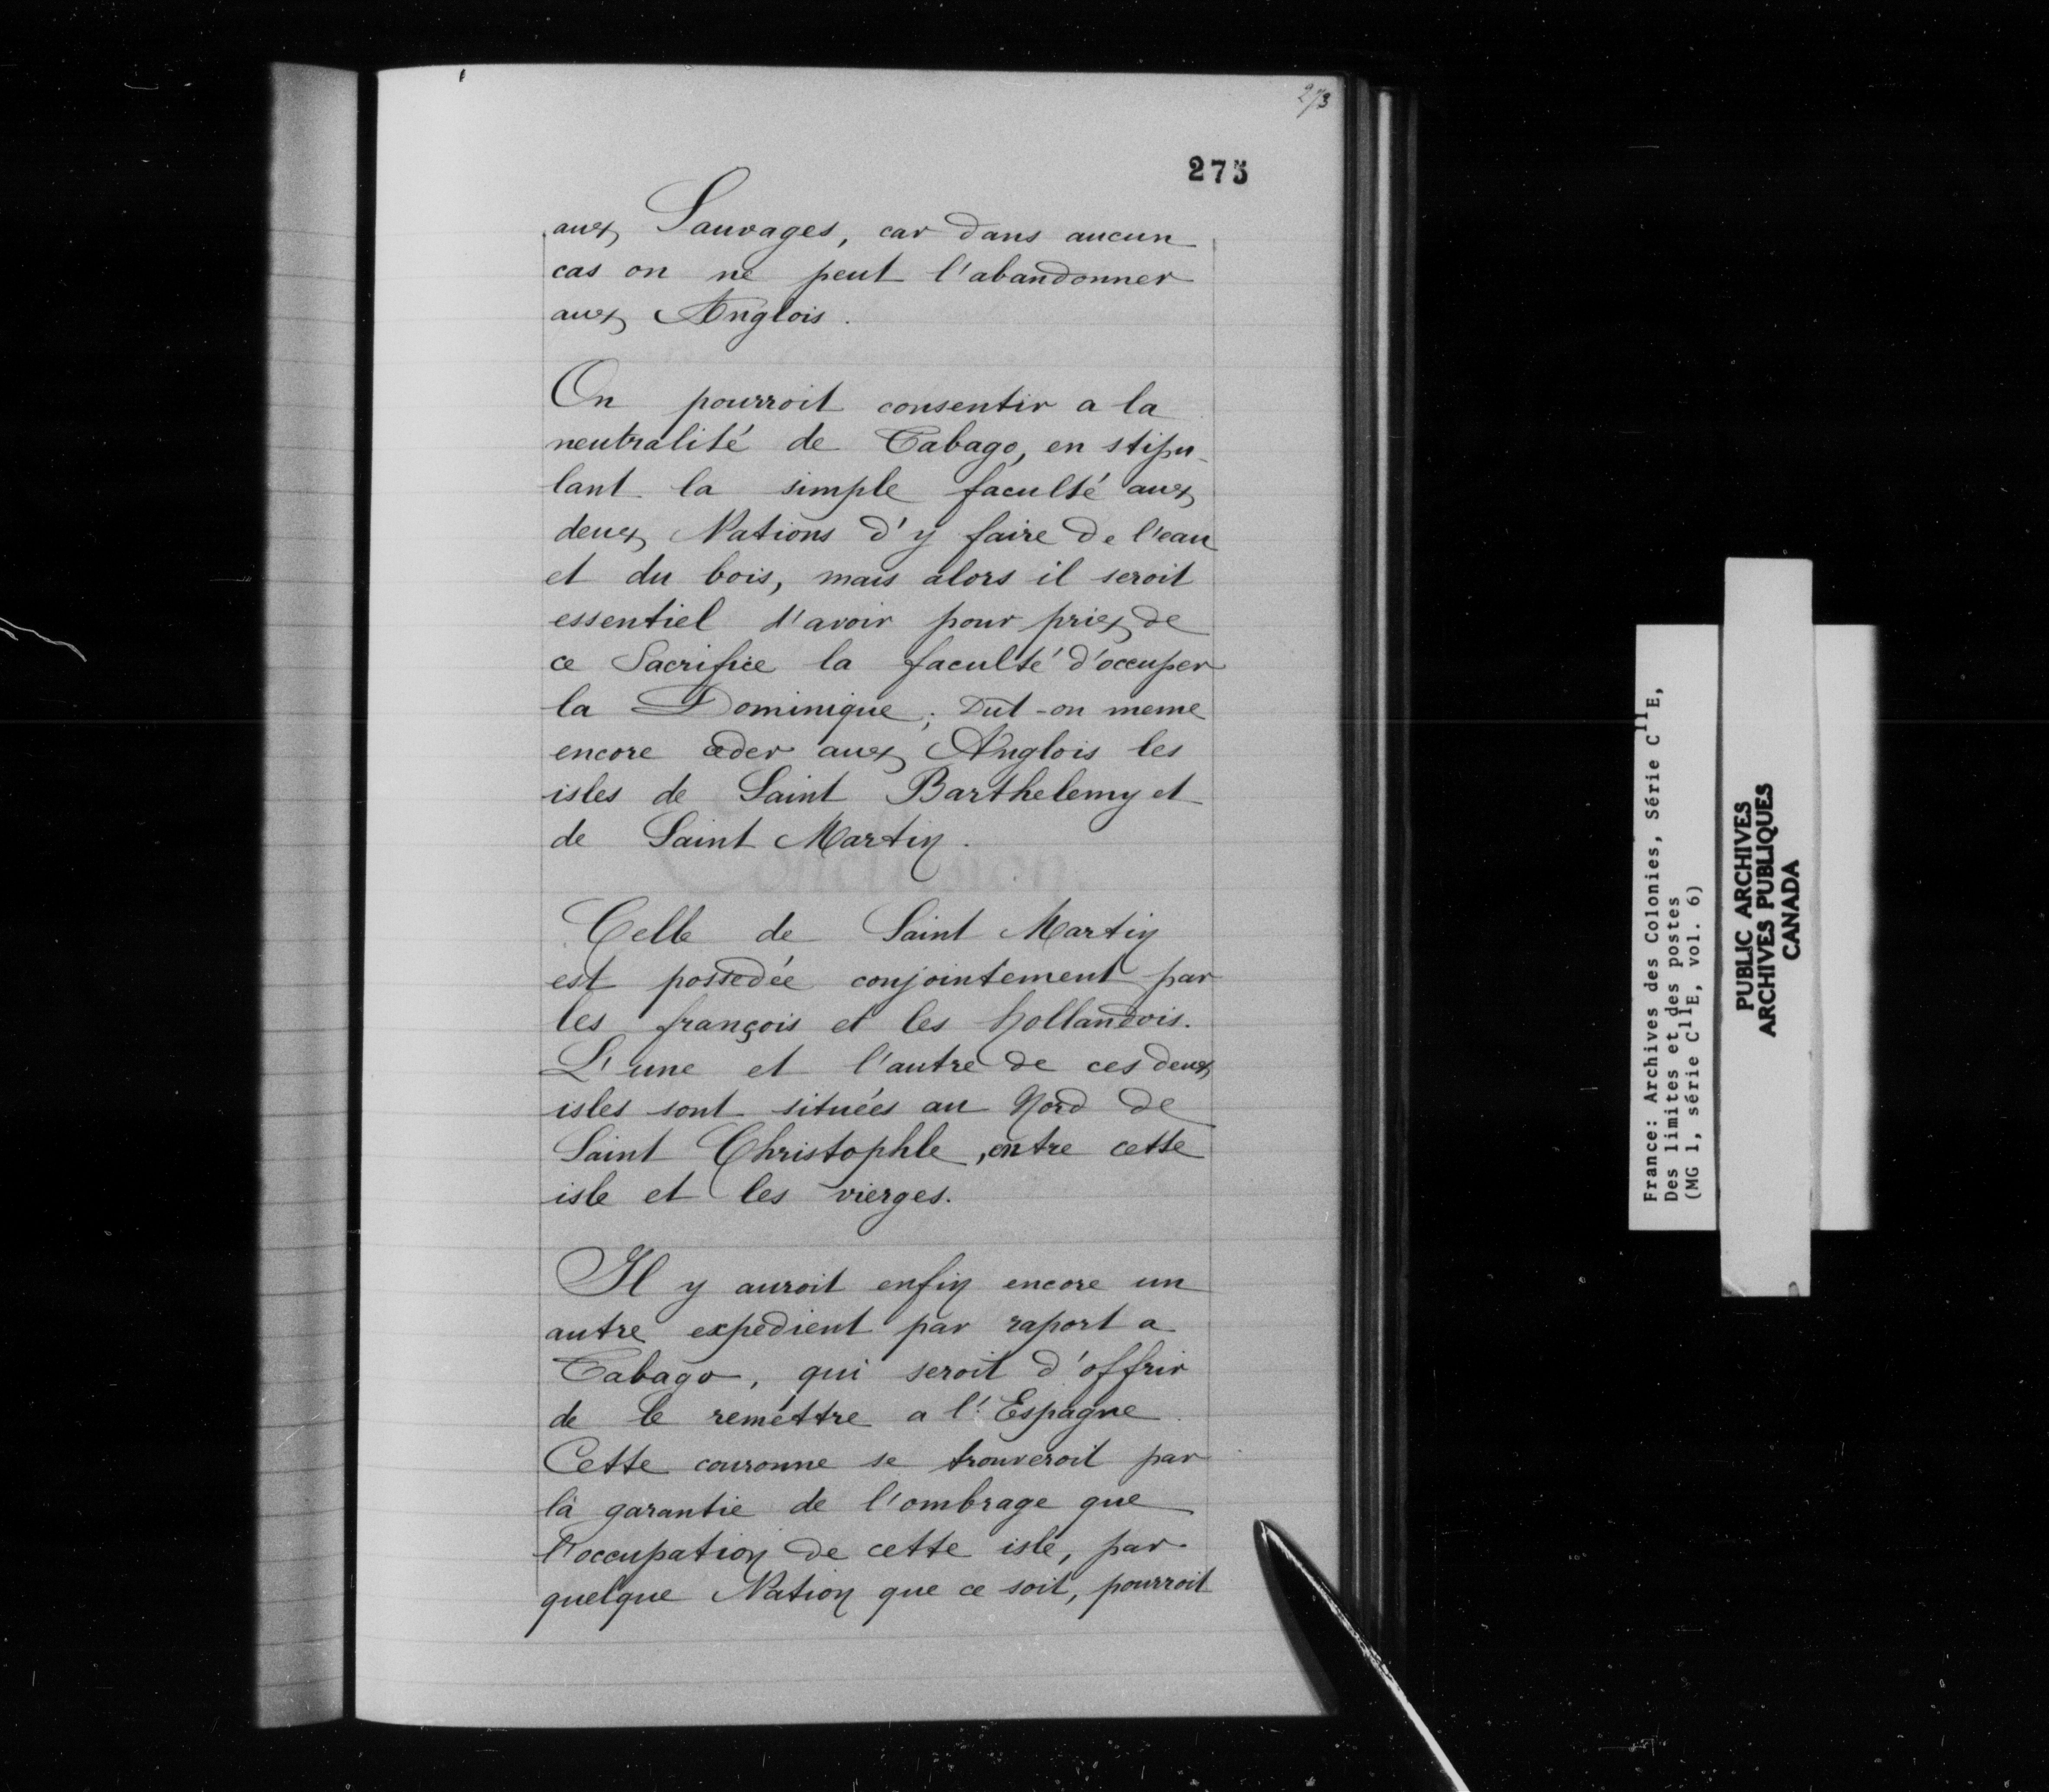 273
275
aux Sauvages, car dans aucun
cas on ne peut l'abandonner
aux Anglois.
On pourroit consentir a la
neutralité de Tabago, en stipu-
lant la simple faculté aux
deux Nations d'y faire de l'eau
et du bois, mais alors il seroit
essentiel d'avoir pour prix de
ce Sacrifice la faculté d'occuper
la Dominique; Dut-on meme
encore ceder aux Anglois les
isles de Saint Barthelemy et
de Saint Martin.
Celle de Saint Martin
est possedée conjointement par
les françois et les hollandois.
L'une et l'autre de ces deux
isles sont situées au Nord de
Saint Christophle, entre cette
isle et les vierges.
Il y auroit enfin encore un
autre expedient par raport a
Tabago, qui seroit d'offrir
de le remettre a l'Espagne.
Cette couronne se trouveroit par
là garantie de l'ombrage que
l'occupation de cette isle, par
quelque Nation que ce soit, pourroit
France: Archives des Colonies, Série C11E,
Des limites et des postes
(MG 1, série C11E, vol. 6)
PUBLIC ARCHIVES
ARCHIVES PUBLIQUES
CANADA